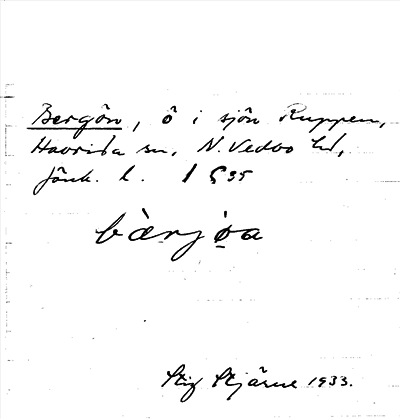 Bergön, ö i sjön Ruppen,
Haurida sn, N. Vedbo hd,
Jönk. l. 1 S 35
bàrjøa
Stig Stjärne 1933.